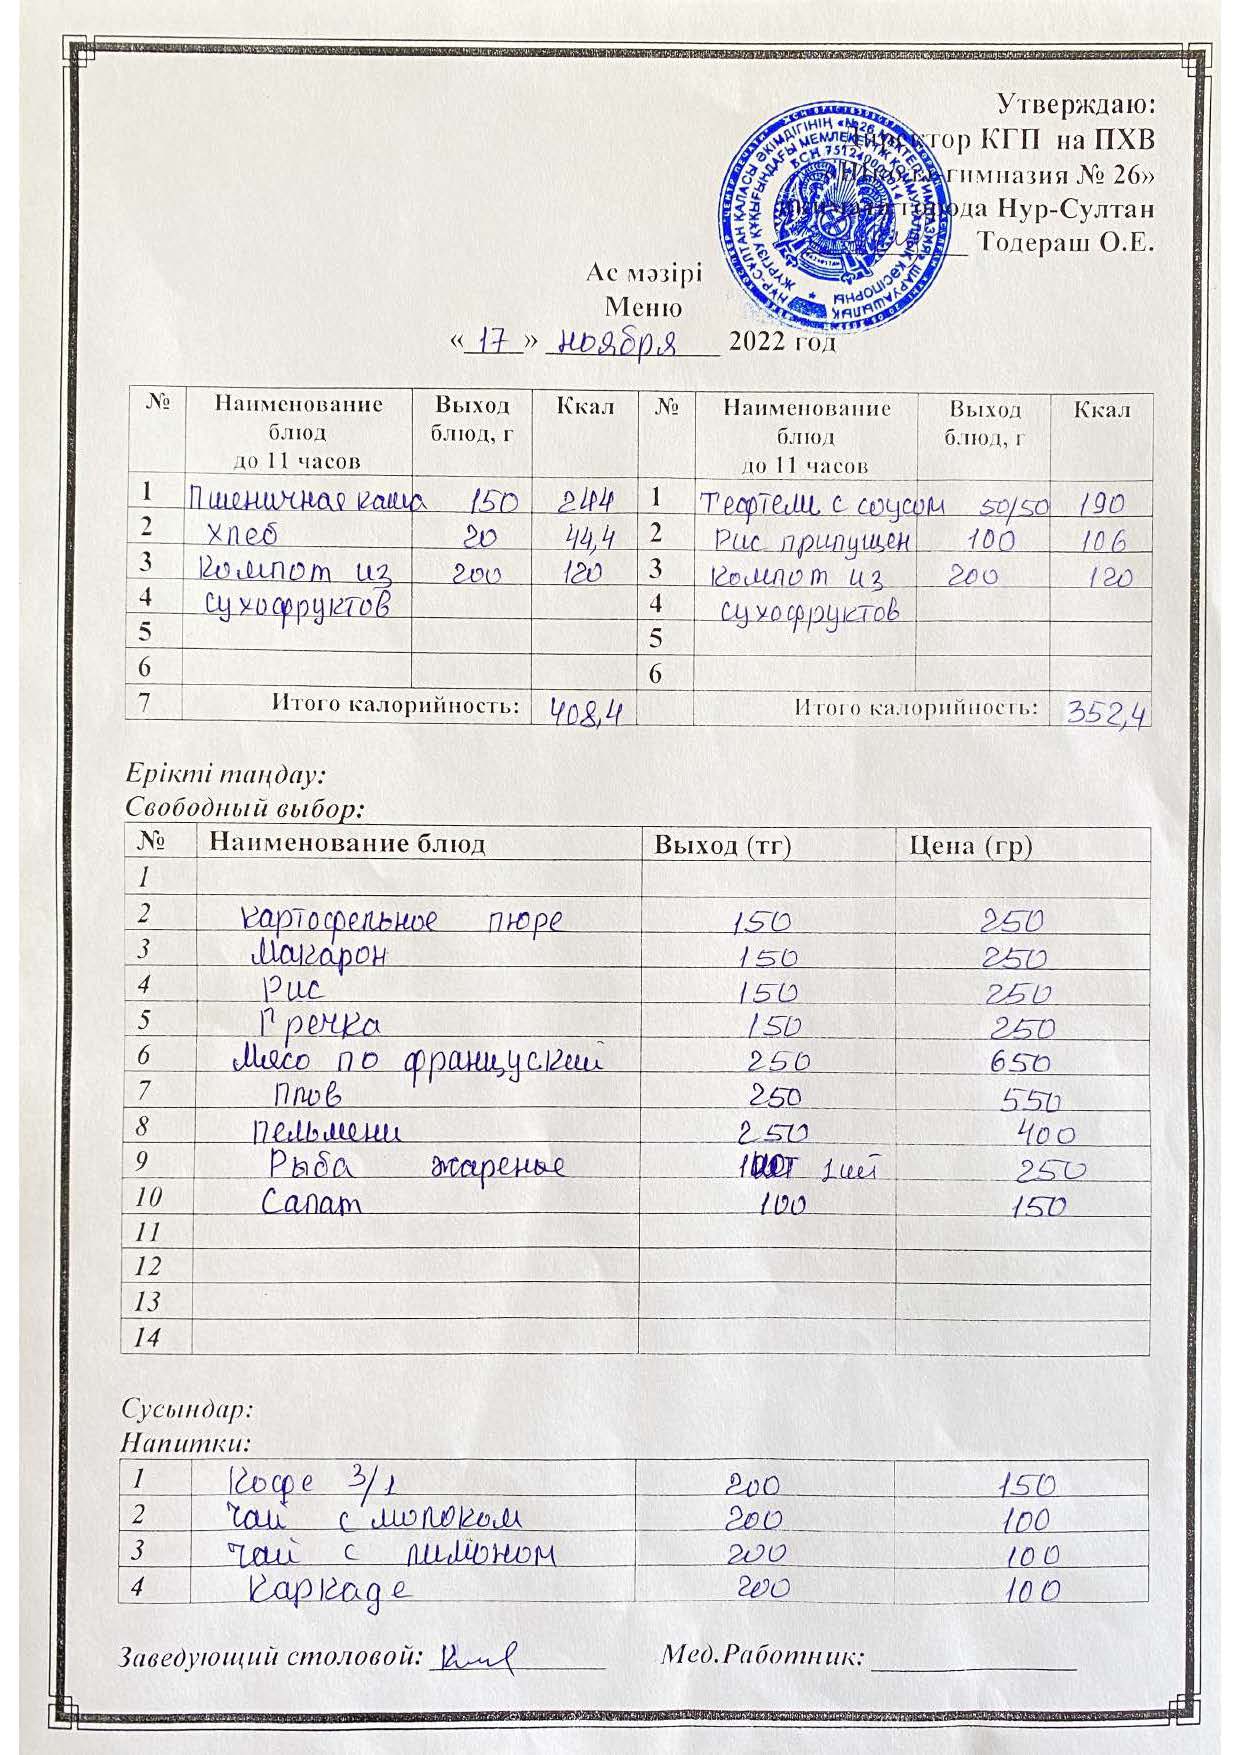 Утверждаю:
Директор КГП на ПХВ
гимназия № 26»
города Нур-Султан
Тодераш О.Е.
Ас мәзірі
Меню
«17» ноября 2022 год
№ Наименование блюд до 11 часов Выход блюд, г Ккал № Наименование блюд до 11 часов Выход блюд, г Ккал
1 Пшеничная каша 150 244 1 Тефтели с соусом 50/50 190
2 хлеб 20 44,4 2 Рис припущен 100 106
3 Компот из 200 120 3 Компот из 200 120
4 сухофруктов 4 сухофруктов
5 5
6 6
7 Итого калорийность: 408,4 Итого калорийность: 352,4
Ерікті таңдау:
Свободный выбор:
№ Наименование блюд Выход (тг) Цена (гр)
1
2 картофельное пюре 150 250
3 Макарон 150 250
4 Рис 150 250
5 Гречка 150 250
6 Мясо по француский 250 650
7 Плов 250 550
8 пельмени 250 400
9 Рыба жареные 1шт 250
10 Салат 100 150
11
12
13
14
Сусындар:
Напитки:
1 Кофе 3/1 200 150
2 Чай с молоком 200 100
3 Чай с лимоном 200 100
4 Каркаде 200 100
Заведующий столовой: Мед.Работник: